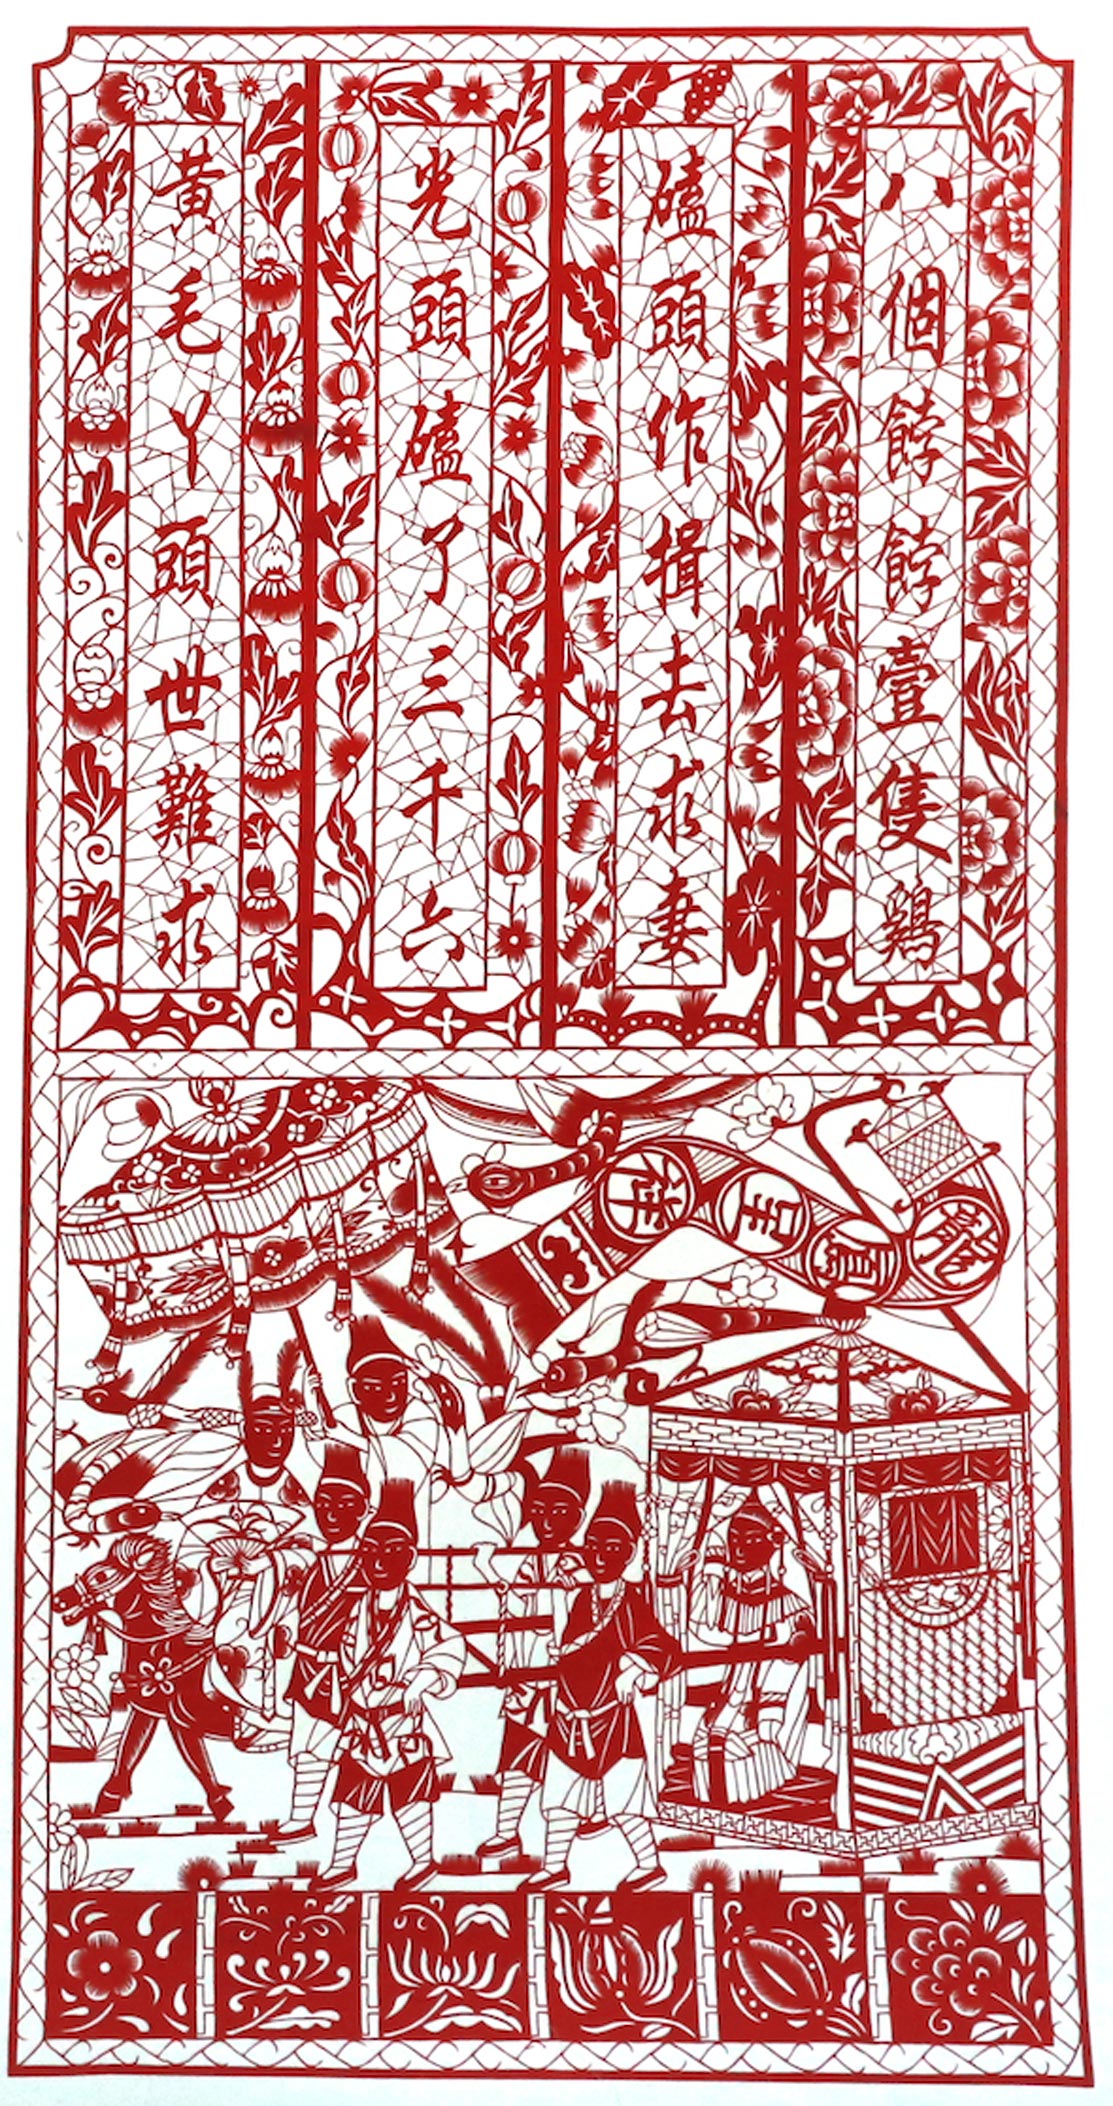 八個餑餑壹隻鷄
磕頭作揖去求妻
光頭磕了三千六
黃毛丫頭世難求
龍鳳呈祥